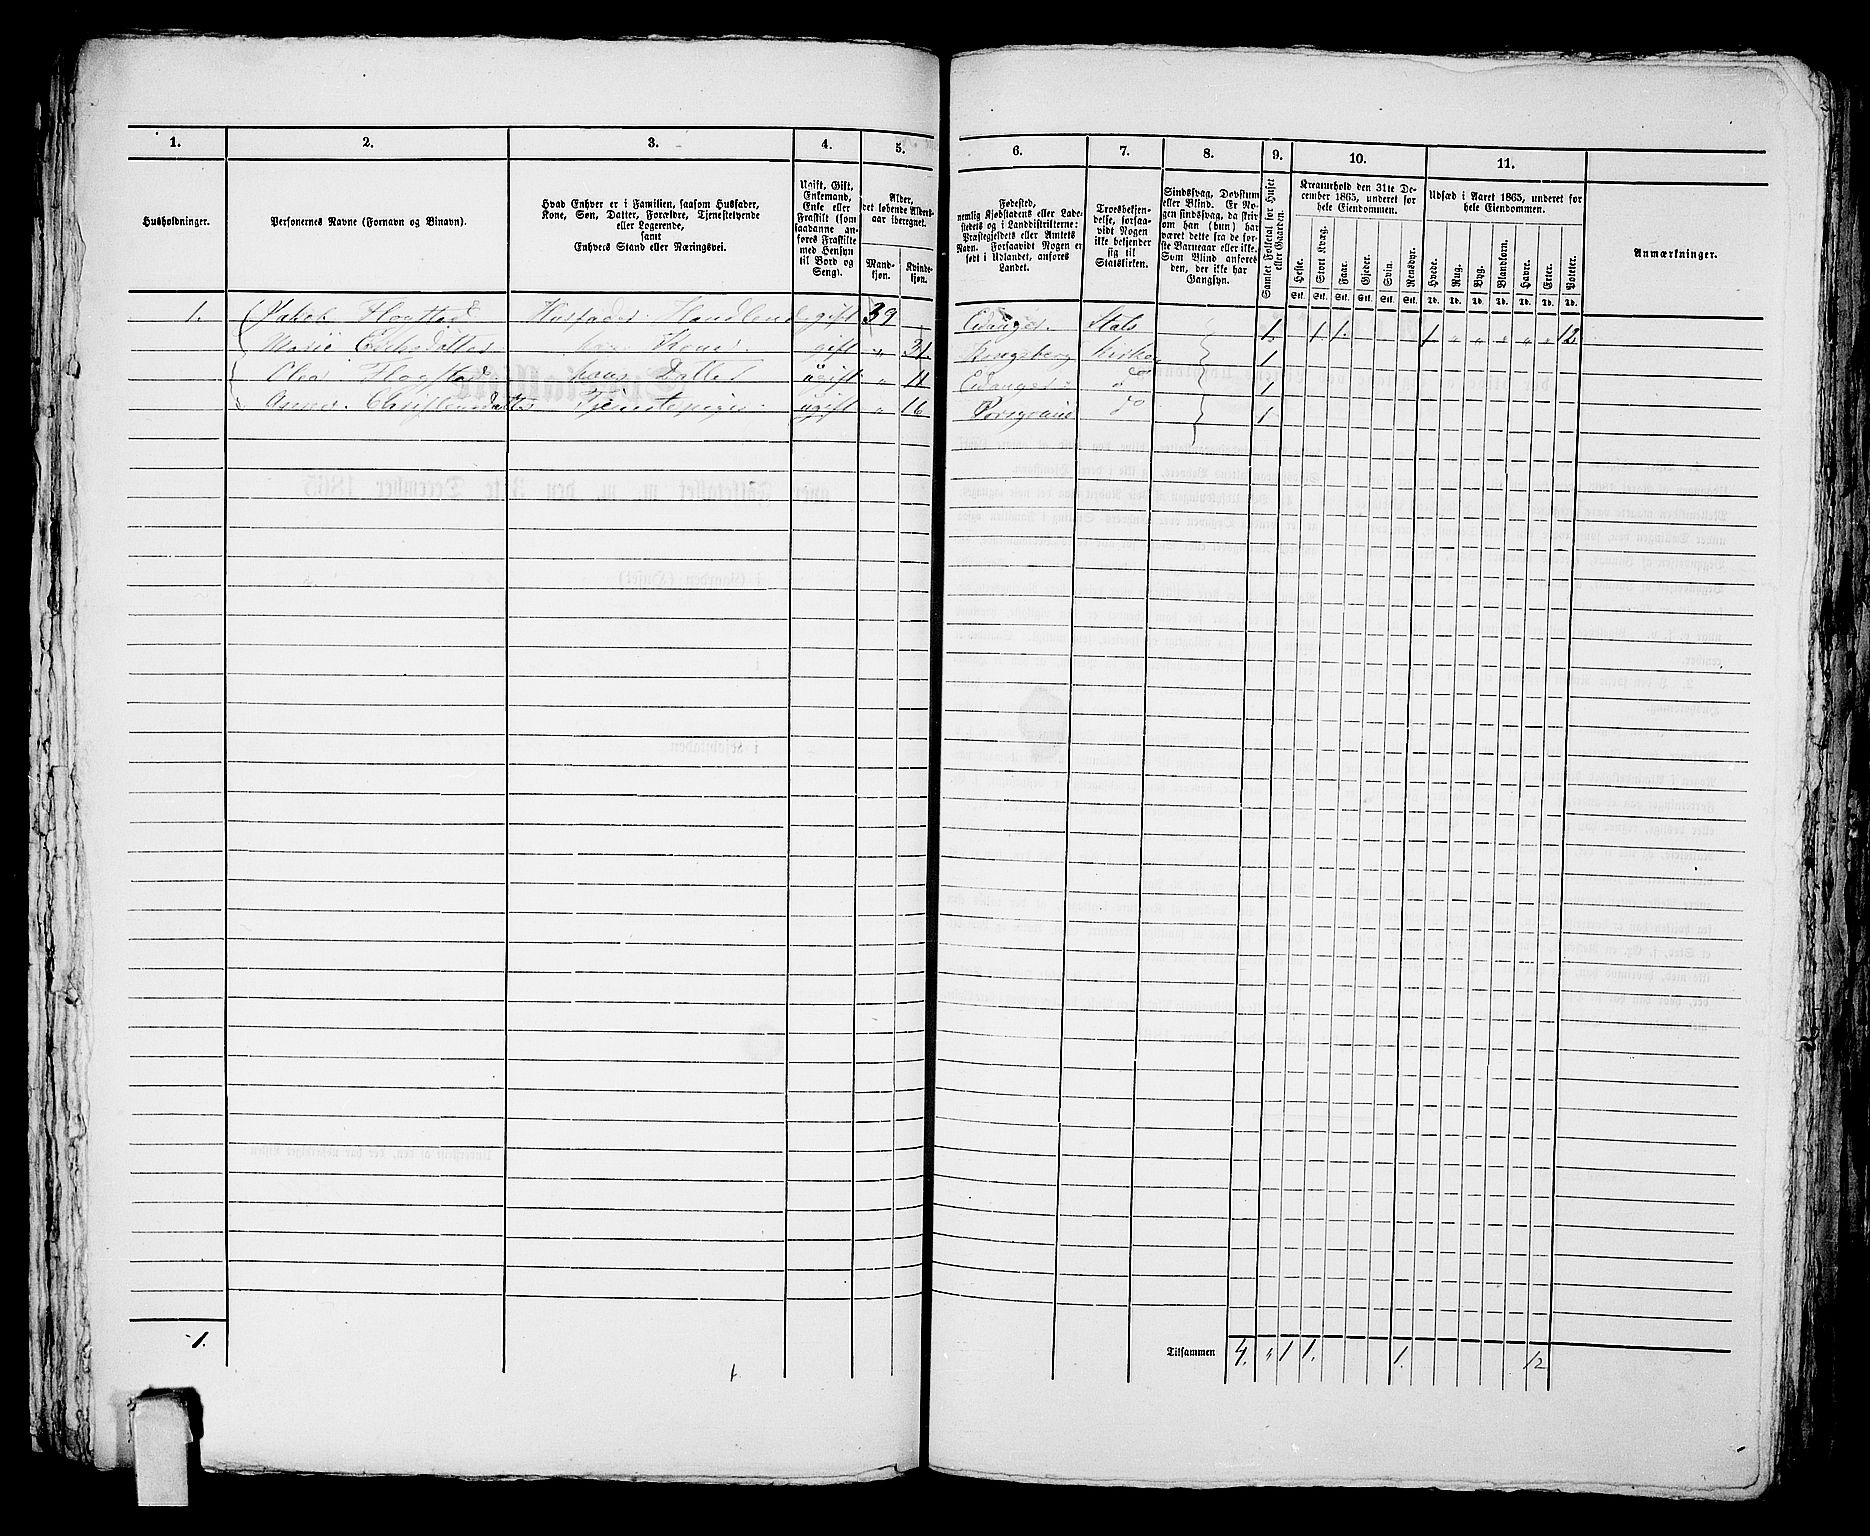 1. 2. 3. 4. 5. 6. 7. 8. 9. 10. 11.
Husholdninger.
Personernes Navne (Fornavn og Binavn).
Hvad Enhver er i Familien, saasom Husfader,
Kone, Søn, Datter, Forældre, Tjenestetyende
eller Logerende,
samt
Enhvers Stand eller Næringsvei.
Ugift, Gift,
Enkemand,
Enke eller
Fraskilt (som
saadanne an-
føres Fraskilte
med Hensyn
til Bord og
Seng).
Alder,
det løbende Alders-
aar iberegnet.
Mand-
kjøn.
Kvinde-
kjøn.
Fødested,
nemlig Kjøbstadens eller Lade-
stedets og i Landdistrikterne:
Præstegjeldets eller Amtets
Navn. Forsaavidt Nogen er
født i Udlandet, anføres
Landet.
Troesbekjen-
delse, forsaa-
vidt Nogen
ikke bekjender
sig til
Statskirken.
Sindssvag, Døvstum
eller Blind. Er No-
gen sindssvag, da skriv
om han (hun) har
været dette fra de før-
ste Barneaar eller ikke.
Som Blind anføres
den, der ikke har
Gangsyn.
Samlet Folketal for Huset
eller Gaarden.
Kreaturhold den 31te De-
cember 1865, underet for
hele Eiendommen.
Heste. Stort Kvæg. Faar. Gjeder. Svin. Rensdyr.
Stk. Stk. Stk. Stk. Stk. Stk.
Udsæd i Aaret 1865, underet for
hele Eiendommen.
Hvede. Rug. Byg. Blandkorn. Havre. Erter. Poteter.
Td. Td. Td. Td. Td. Td. Td.
Anmærkninger.
1. Jakob Flogstad Husfader Handlende gift 39 Eidanger Stats 1. 1 1. 1 „ „ „ „ „ 12
Marie Kone. gift „ 31. Kongsberg Kirken 1
Olea Flogstad hans Datter ugift „ 11 Eidanger do 1
Anne Christensdatter Tjenestepige ugift „ 16 Porsgrund do 1
1.
Tilsammen 4. „ 1 1. 1. 12